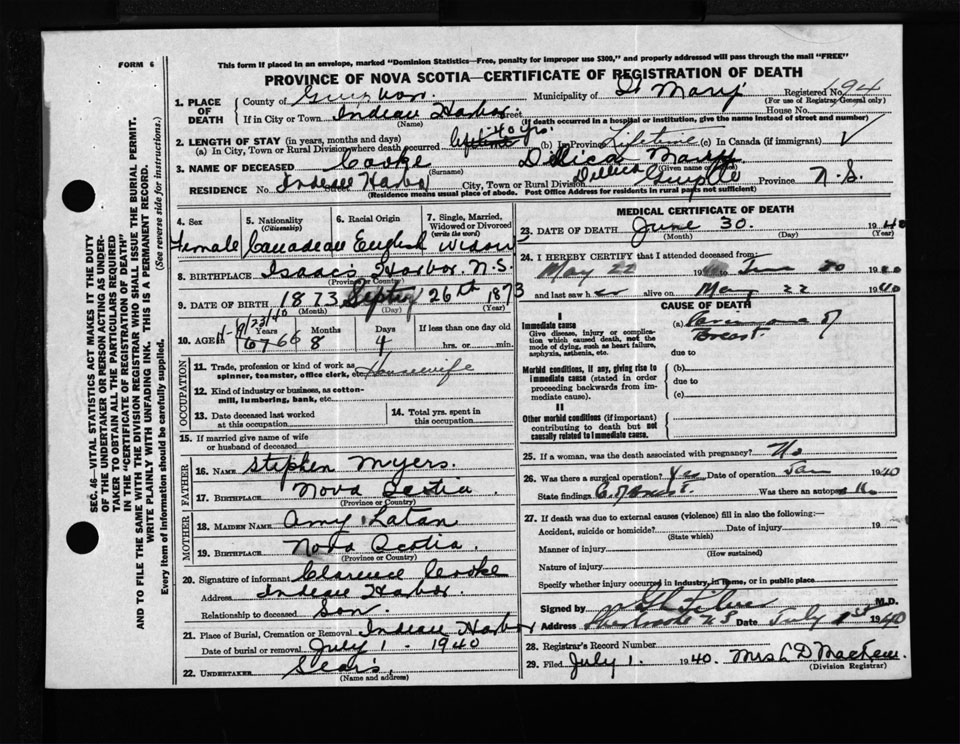 FORM 6
This form if placed in an envelope, marked "Dominion Statistics—Free, penalty for improper use $300," and properly addressed will pass through the mail "FREE"
PROVINCE OF NOVA SCOTIA—CERTIFICATE OF REGISTRATION OF DEATH
SEC. 46—VITAL STATISTICS ACT MAKES IT THE DUTY
OF THE UNDERTAKER OR PERSON ACTING AS UNDER-
TAKER TO OBTAIN ALL THE PARTICULARS REQUIRED
IN THE "CERTIFICATE OF REGISTRATION OF DEATH"
AND TO FILE THE SAME WITH THE DIVISION REGISTRAR WHO SHALL ISSUE THE BURIAL PERMIT.
WRITE PLAINLY WITH UNFADING INK. THIS IS A PERMANENT RECORD.
Every item of Information should be carefully supplied. (See reverse side for instructions.)
1. PLACE OF DEATH
County of Municipality of St Marys Registered No. 94
(For use of Registrar-General only)
If in City or Town Indian Harbor Street House No.
(Name) (If death occurred in a hospital or institution, give the name instead of street and number)
2. LENGTH OF STAY (in years, months and days)
(a) In City, Town or Rural Division where death occurred lifetime 40 yrs. (b) In Province Lifetime (c) In Canada (if immigrant)
3. NAME OF DECEASED Cooke
(Surname) (Given name or names)
RESIDENCE No. Street Indian Harbor City, Town or Rural Division Province N.S.
(Residence means usual place of abode. Post Office Address for residents in rural parts not sufficient)
4. Sex Female
5. Nationality (Citizenship) Canadian
6. Racial Origin English
7. Single, Married, Widowed or Divorced (write the word) Widow
8. BIRTHPLACE Isaac's Harbor. N.S.
(Province or Country)
9. DATE OF BIRTH 1873 Sept 26th 1873
(Month) (Day) (Year)
10. AGE Years 67 66 Months 8 Days 4 If less than one day old hrs. or min.
OCCUPATION
11. Trade, profession or kind of work as spinner, teamster, office clerk, etc. Housewife
12. Kind of industry or business, as cotton-mill, lumbering, bank, etc.
13. Date deceased last worked at this occupation
14. Total yrs. spent in this occupation
15. If married give name of wife or husband of deceased
FATHER
16. NAME Stephen Myers.
17. BIRTHPLACE Nova Scotia
(Province or Country)
MOTHER
18. MAIDEN NAME Amy Latan
19. BIRTHPLACE Nova Scotia.
(Province or Country)
20. Signature of informant Clarence Cooke
Address Indian Harbor.
Relationship to deceased Son.
21. Place of Burial, Cremation or Removal Indian Harbor
Date of burial or removal July 1. 1940
22. UNDERTAKER Sears.
(Name and address)
MEDICAL CERTIFICATE OF DEATH
23. DATE OF DEATH June 30. 1940
(Month) (Day) (Year)
24. I HEREBY CERTIFY that I attended deceased from:
May 22 1940 to June 30 1940
and last saw her alive on May 22 1940
CAUSE OF DEATH
I
Immediate cause
Give disease, injury or complication which caused death, not the mode of dying, such as heart failure, asphyxia, asthenia, etc.
(a) Carcinoma of
Breast.
due to
Morbid conditions, if any, giving rise to immediate cause (stated in order proceeding backwards from immediate cause).
(b)
due to
(c)
II
Other morbid conditions (if important) contributing to death but not causally related to immediate cause.
25. If a woman, was the death associated with pregnancy? No
26. Was there a surgical operation? Yes Date of operation Jan 1940
State findings Was there an autopsy? No.
27. If death was due to external causes (violence) fill in also the following:—
Accident, suicide or homicide? Date of injury 19
(State which)
Manner of injury
(How sustained)
Nature of injury
Specify whether injury occurred in Industry, in Home, or in public place
Signed by M.D.
Address Sherbrooke NS Date July 1st 1940
28. Registrar's Record Number
29. Filed July 1. 1940. Mrs L D
(Division Registrar)